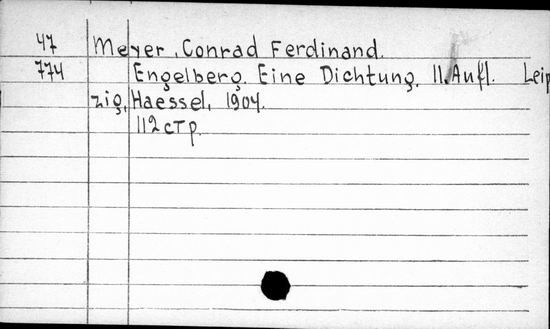 47 Meyer, Conrad Ferdinand.
774 Engelberg. Eine Dichtung. 11. Aufl. Leip
zig, Haessel, 1904.
112 стр.